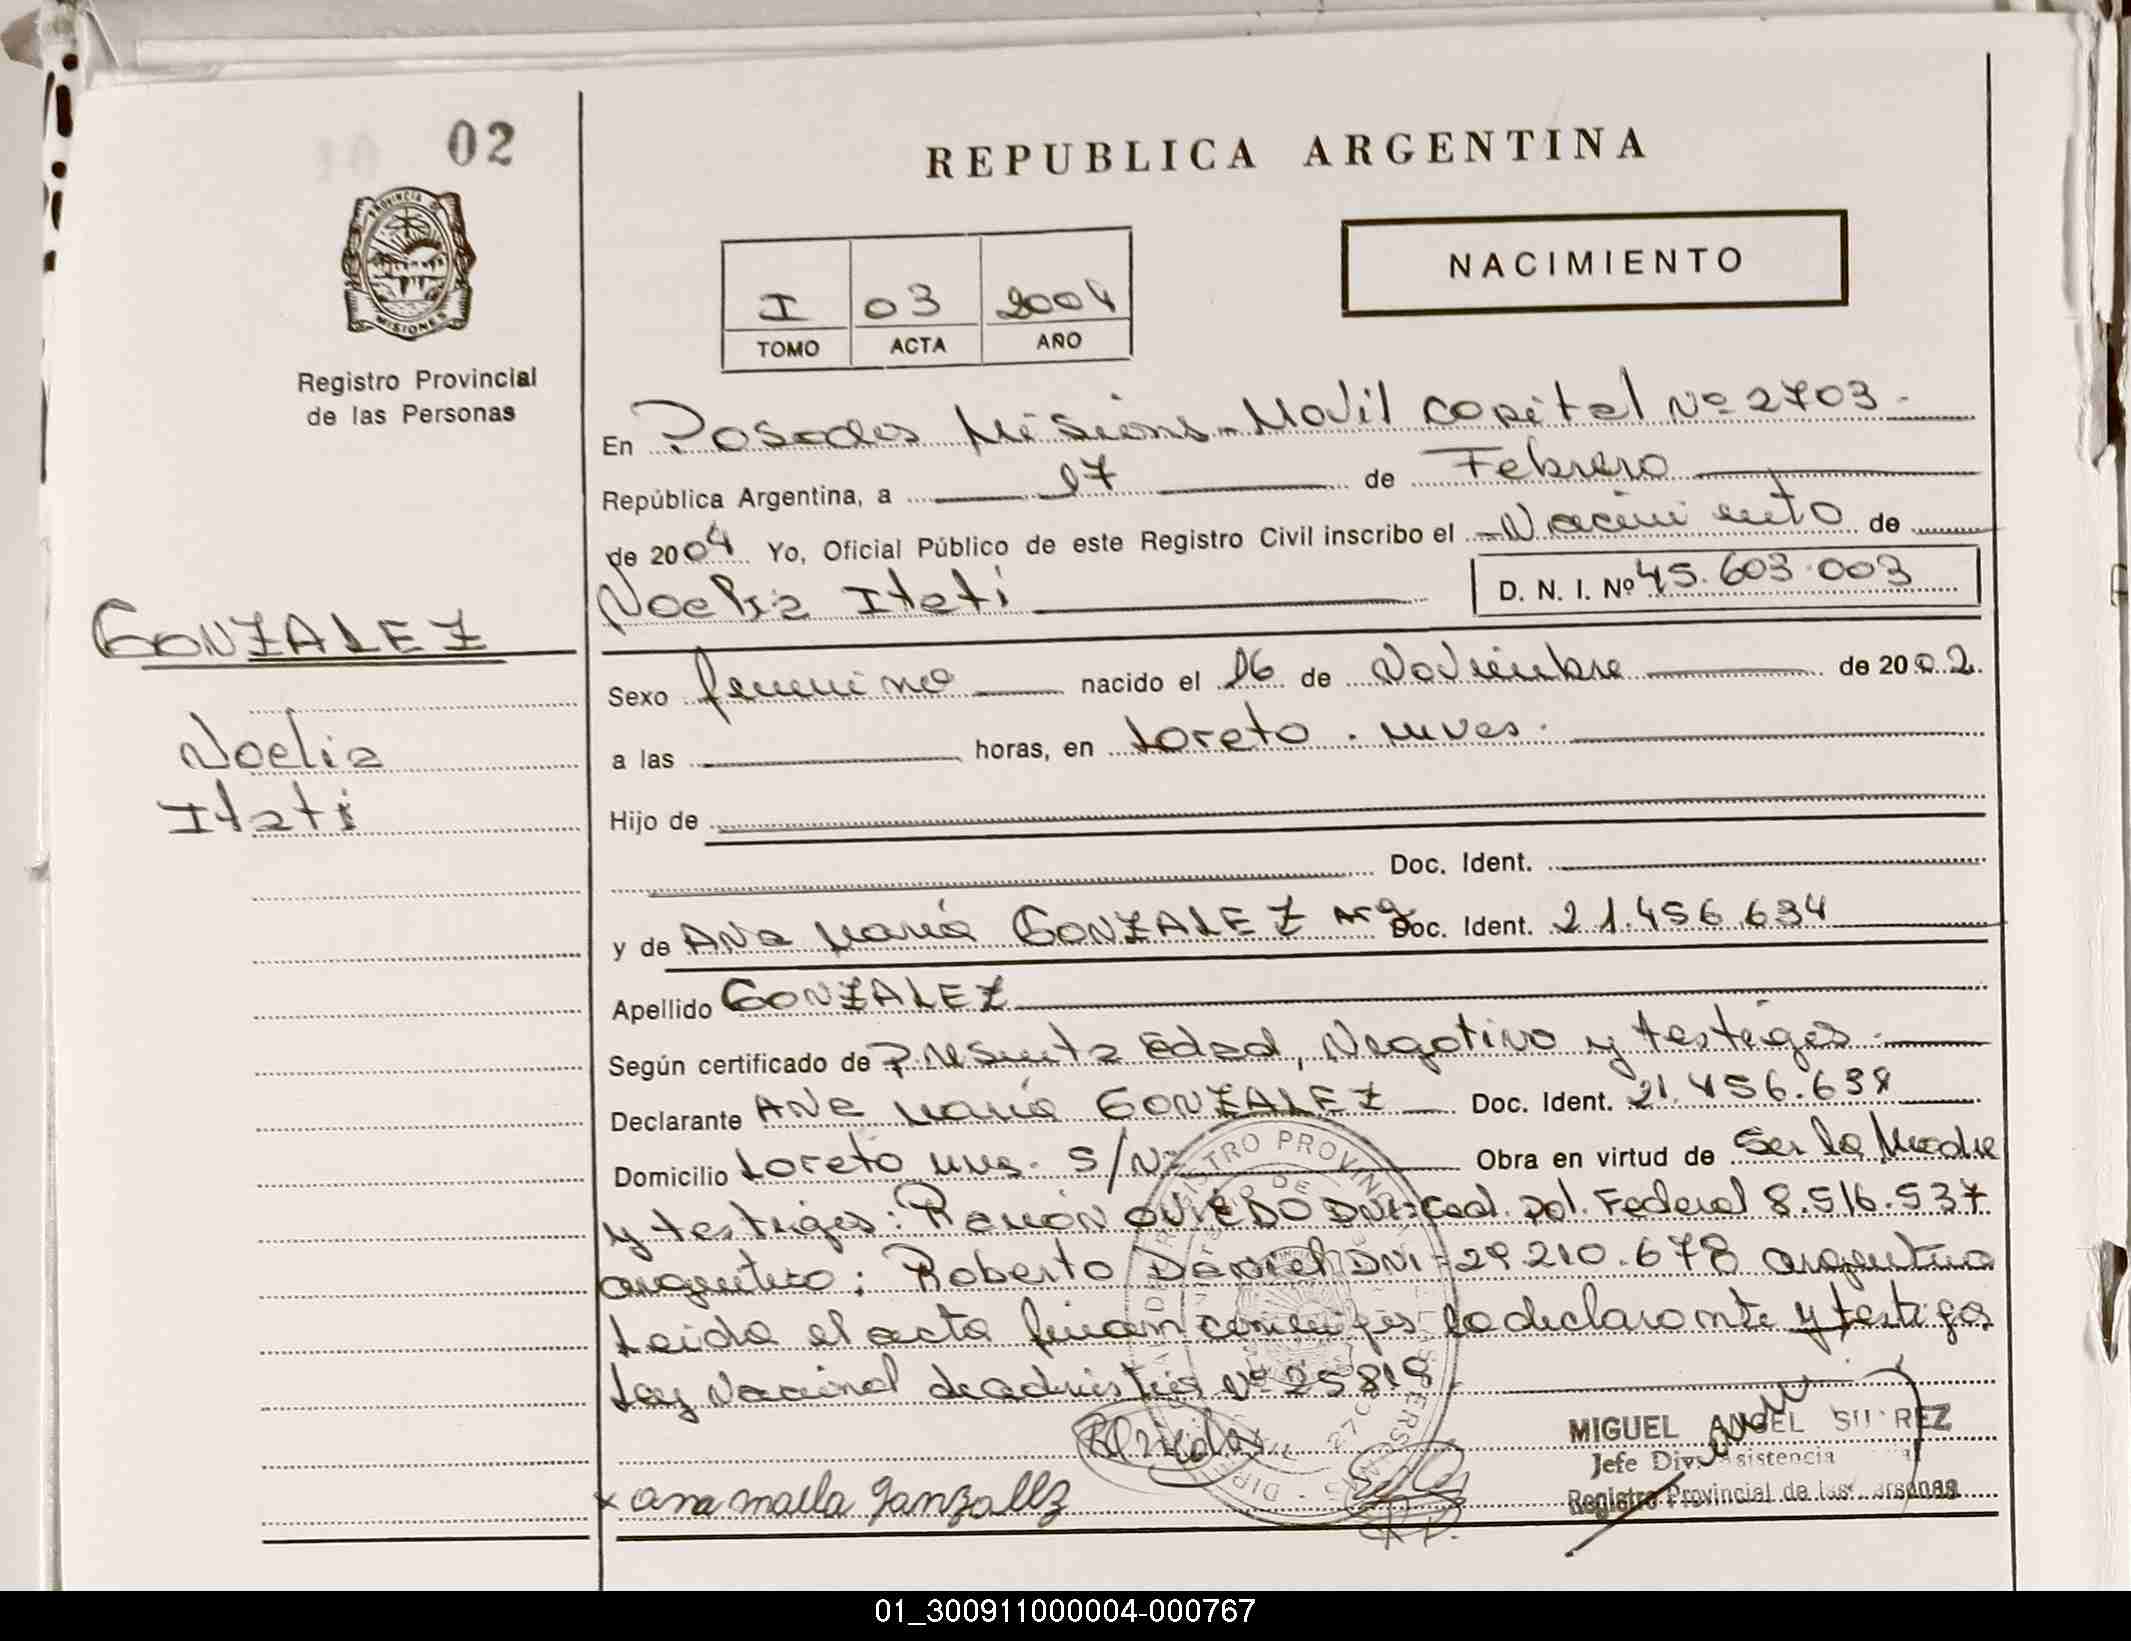 02
REPUBLICA ARGENTINA
PROVINCIA DE
MISIONES
Registro Provincial
de las Personas
I 03 2004
TOMO ACTA AÑO
NACIMIENTO
En Posadas Misiones - Movil Capital Nº 2703 -
República Argentina, a 17 de Febrero
de 2004 Yo, Oficial Público de este Registro Civil inscribo el Nacimiento de
Noelia Itati D. N. I. Nº 45.603.003
GONZALEZ
Noelia
Itati
Sexo femenino nacido el 16 de Noviembre de 2002.
a las horas, en Loreto .
Hijo de
Doc. Ident.
y de Ana María GONZALEZ Arg Doc. Ident. 21.456.634
Apellido GONZALEZ
Según certificado de Presunta Edad, Negativo y testigos.
Declarante Ana María GONZALEZ Doc. Ident. 21.456.634
Domicilio Loreto S/Nº Obra en virtud de Ser la Madre
y testigos: Ramón OVIEDO Ced. Pol. Federal 8.516.537
argentino; Roberto Daniel DNI = 29.210.678 argentino
Leida el acta firman conmigo la declarante y testigos
Ley Nacional de Nº 25819
x ana maria gonzallz
MIGUEL ANGEL SUAREZ
Jefe Div. Asistencia
Registro Provincial de las Personas
01_300911000004-000767